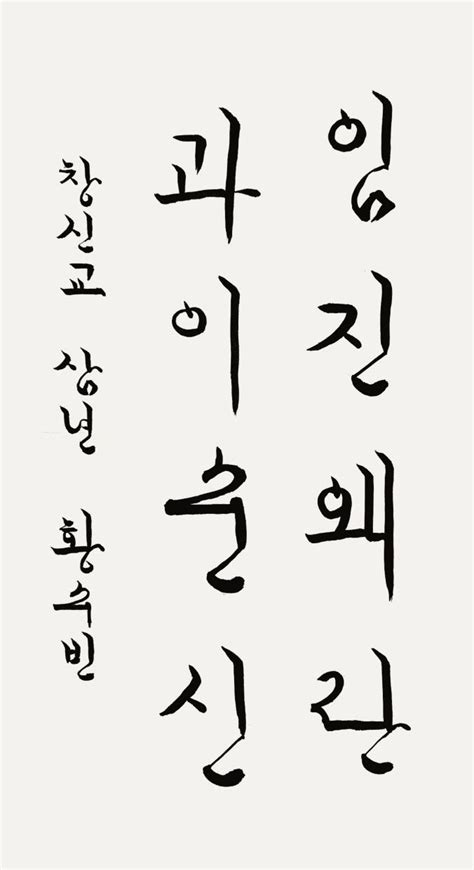 임진왜란
과이순신
창신교 삼년 황수빈